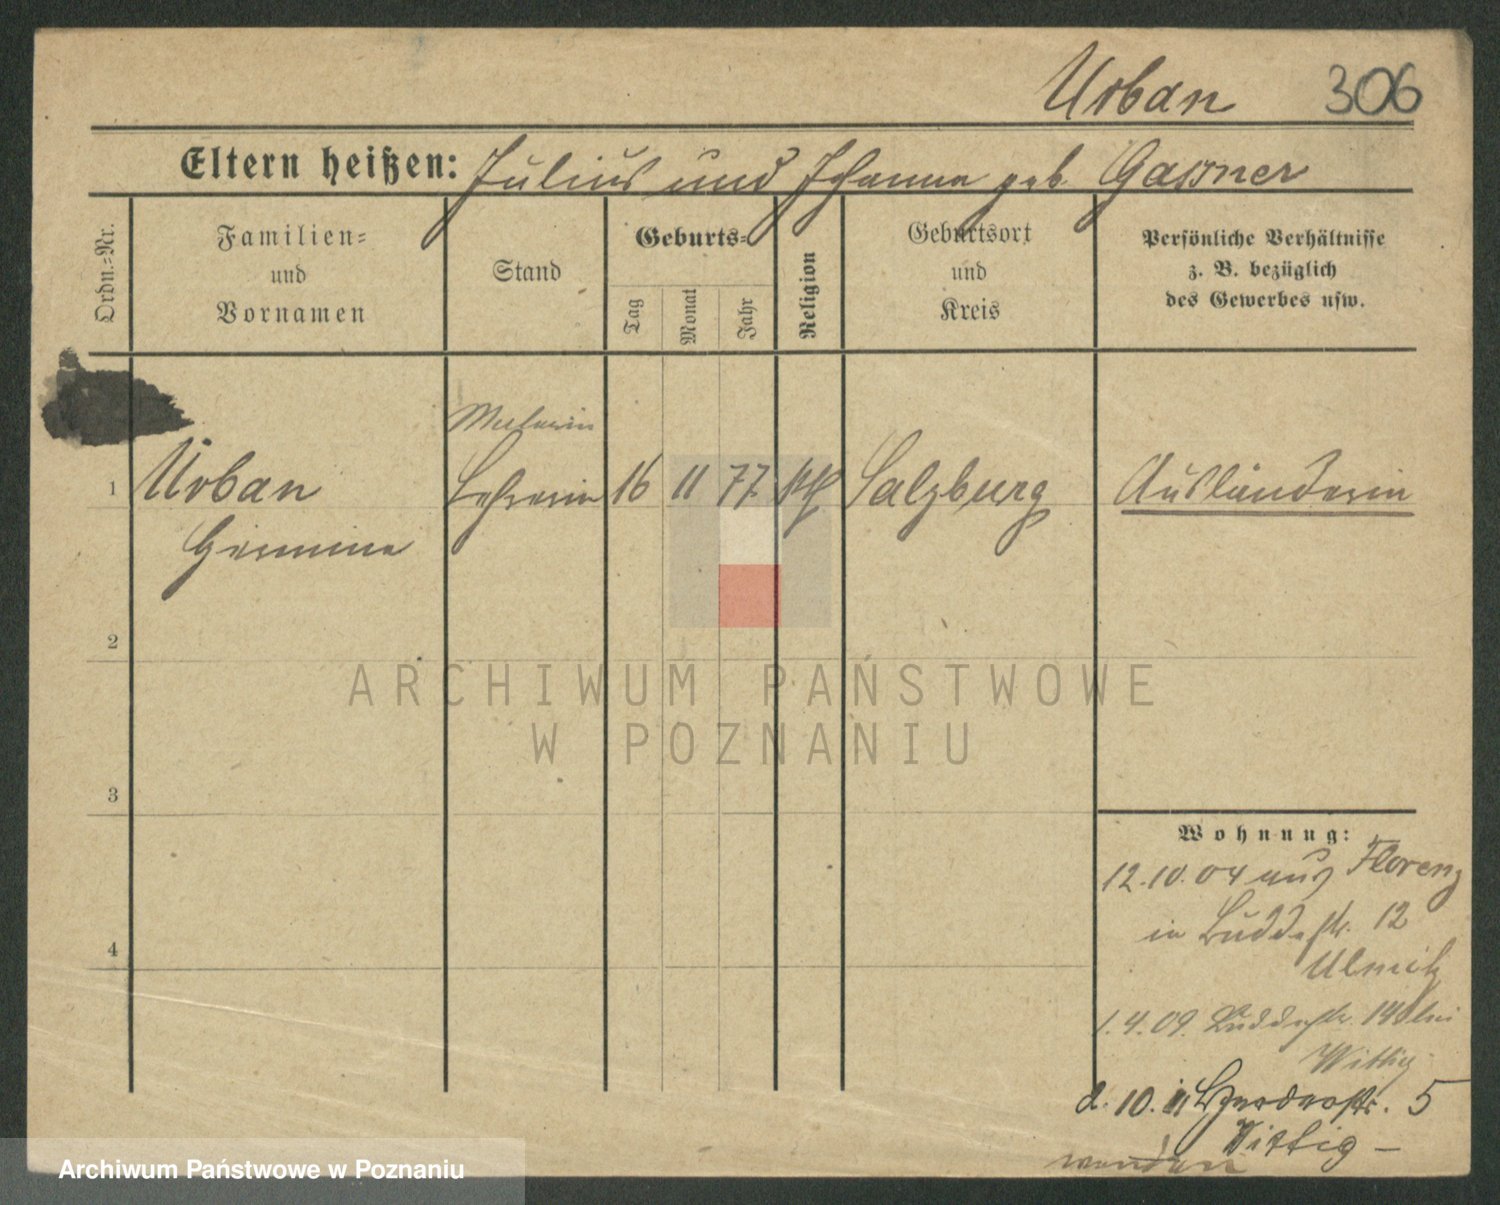 Urban 306
Eltern heißen: Julius und Johanna geb. Gassner
Ordn.-Nr.
Familien-
und
Vornamen
Stand
Geburts-
Tag
Monat
Jahr
Religion
Geburtsort
und
Kreis
Persönliche Verhältnisse
z. B. bezüglich
des Gewerbes usw.
Malerin
1 Urban Lehrerin 16 11 77 kth Salzburg Ausländerin
Hermine
2
ARCHIWUM PAŃSTWOWE
W POZNANIU
3
Wohnung:
12.10.04 aus Florenz
in Buddestr. 12
4
1.4.09. Buddestr. 14 bei
Wittig
d. 10. 5
Wittig –
wenden
Archiwum Państwowe w Poznaniu